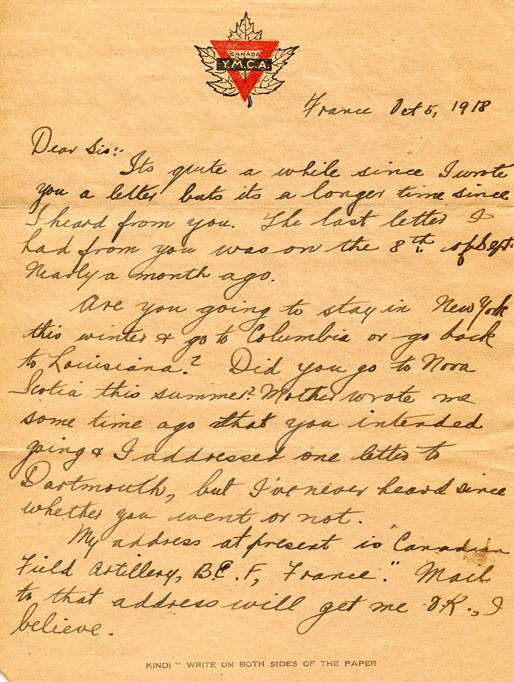 CANADA
Y.M.C.A.
France Oct 5, 1918
Dear Sis:-
Its quite a while since I wrote
you a letter buts its a longer time since
I heard from you. The last letter I
had from you was on the 8th of Sept.
Nearly a month ago.
Are you going to stay in New York
this winter & go to Columbia or go back
to Louisiana? Did you go to Nova
Scotia this summer? Mother wrote me
some time ago that you intended
going & I addressed one letter to
Dartmouth, but I've never heard since
whether you went or not.
My address at present is "Canadian
Field Artillery, B.E.F, France." Mail
to that address will get me O.K., I
believe.
KINDLY WRITE ON BOTH SIDES OF THE PAPER